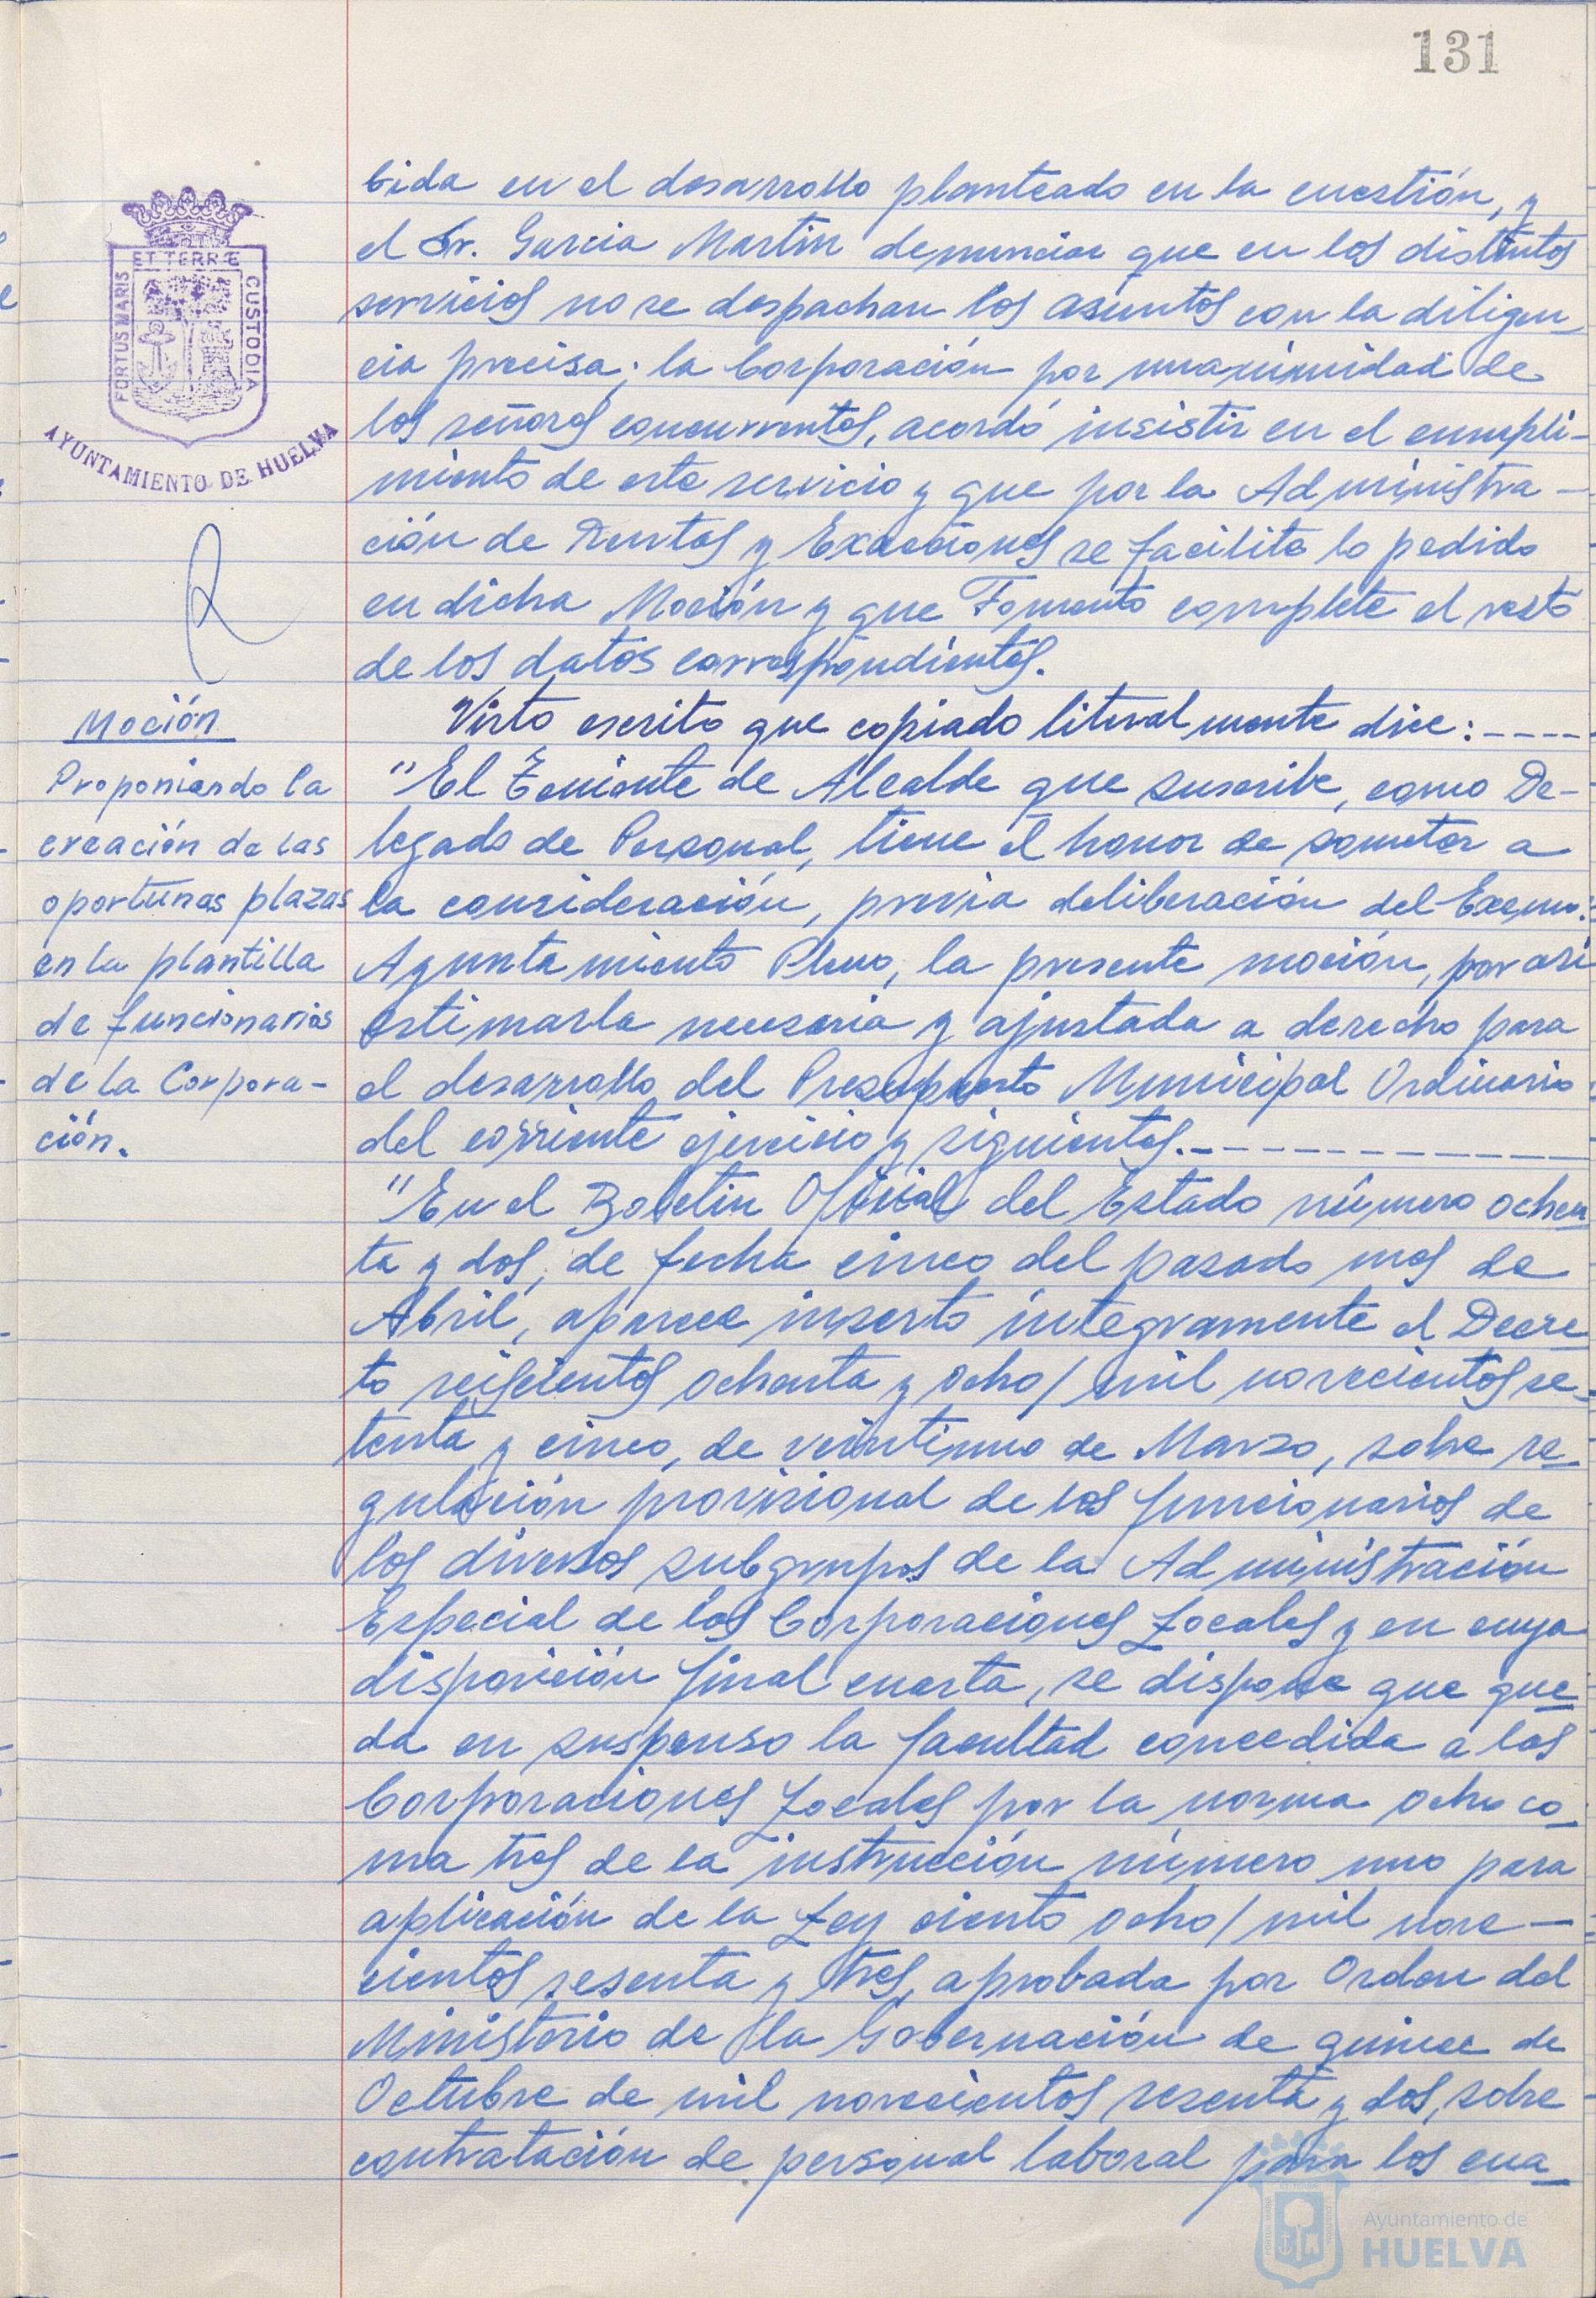 131
PORTUS MARIS
ET TERRÆ
CUSTODIA
AYUNTAMIENTO DE HUELVA
bida en el desarrollo planteado en la cuestión, y
el Sr. Garcia Martin denunciar que en los distintos
servicios no se despachan los asuntos con la diligen
cia precisa; la Corporación por unanimidad de
los señores concurrentes, acordó insistir en el cumpli-
miento de este servicio y que por la Administra-
ción de Rentas y Exacciones se facilite lo pedido
en dicha Moción y que Fomento complete el resto
de los datos correspondientes.
Moción
Proponiendo la
creación de las
oportunas plazas
en la plantilla
de funcionarios
de la Corpora-
ción.
Visto escrito que copiado literalmente dice:----
"El Teniente de Alcalde que suscribe, como De-
legado de Personal, tiene el honor de someter a
la consideración, previa deliberación del Excmo.
Ayuntamiento Pleno, la presente moción, por asi
estimarla necesaria y ajustada a derecho para
el desarrollo del Presupuesto Municipal Ordinario
del corriente ejercicio y siguientes.-------------
"En el Boletin Oficial del Estado número ochen
ta y dos, de fecha cinco del pasado mes de
Abril, aparece inserto integramente el Decre
to seiscientos ochenta y ocho/ mil novecientos se-
tenta y cinco, de veintiuno de Marzo, sobre re-
gulación provisional de los funcionarios de
los diversos subgrupos de la Administración
Especial de las Corporaciones Locales y en cuya
disposición final cuarta, se dispone que que
da en suspenso la facultad concedida a las
Corporaciones Locales por la norma ocho co-
ma tres de la instrucción número uno para
aplicación de la Ley ciento ocho/ mil nove-
cientos sesenta y tres, aprobada por Orden del
Ministerio de la Gobernación de quince de
Octubre de mil novecientos sesenta y dos, sobre
contratación de personal laboral para los cua-
Ayuntamiento de
HUELVA